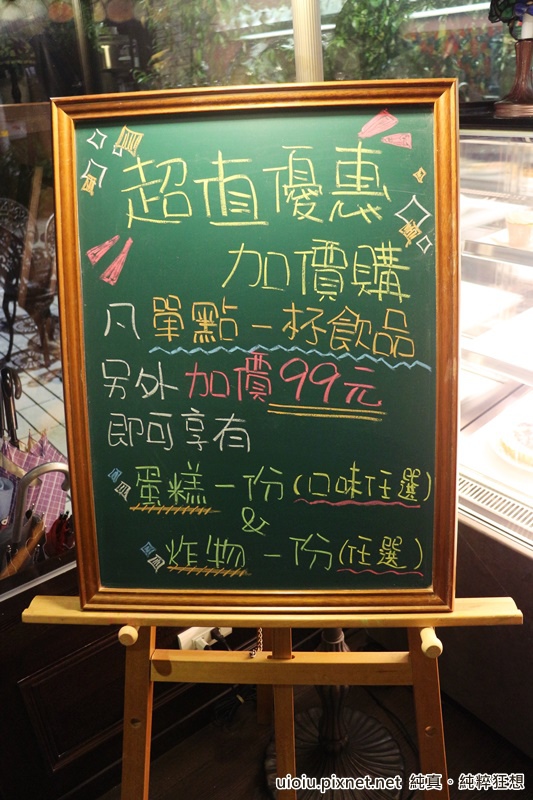 超值優惠
加價購
凡單點一杯飲品
另外加價99元
即可享有
蛋糕一份(口味任選)
&
炸物一份(任選)
uioiu.pixnet.net 純真。純粹狂想